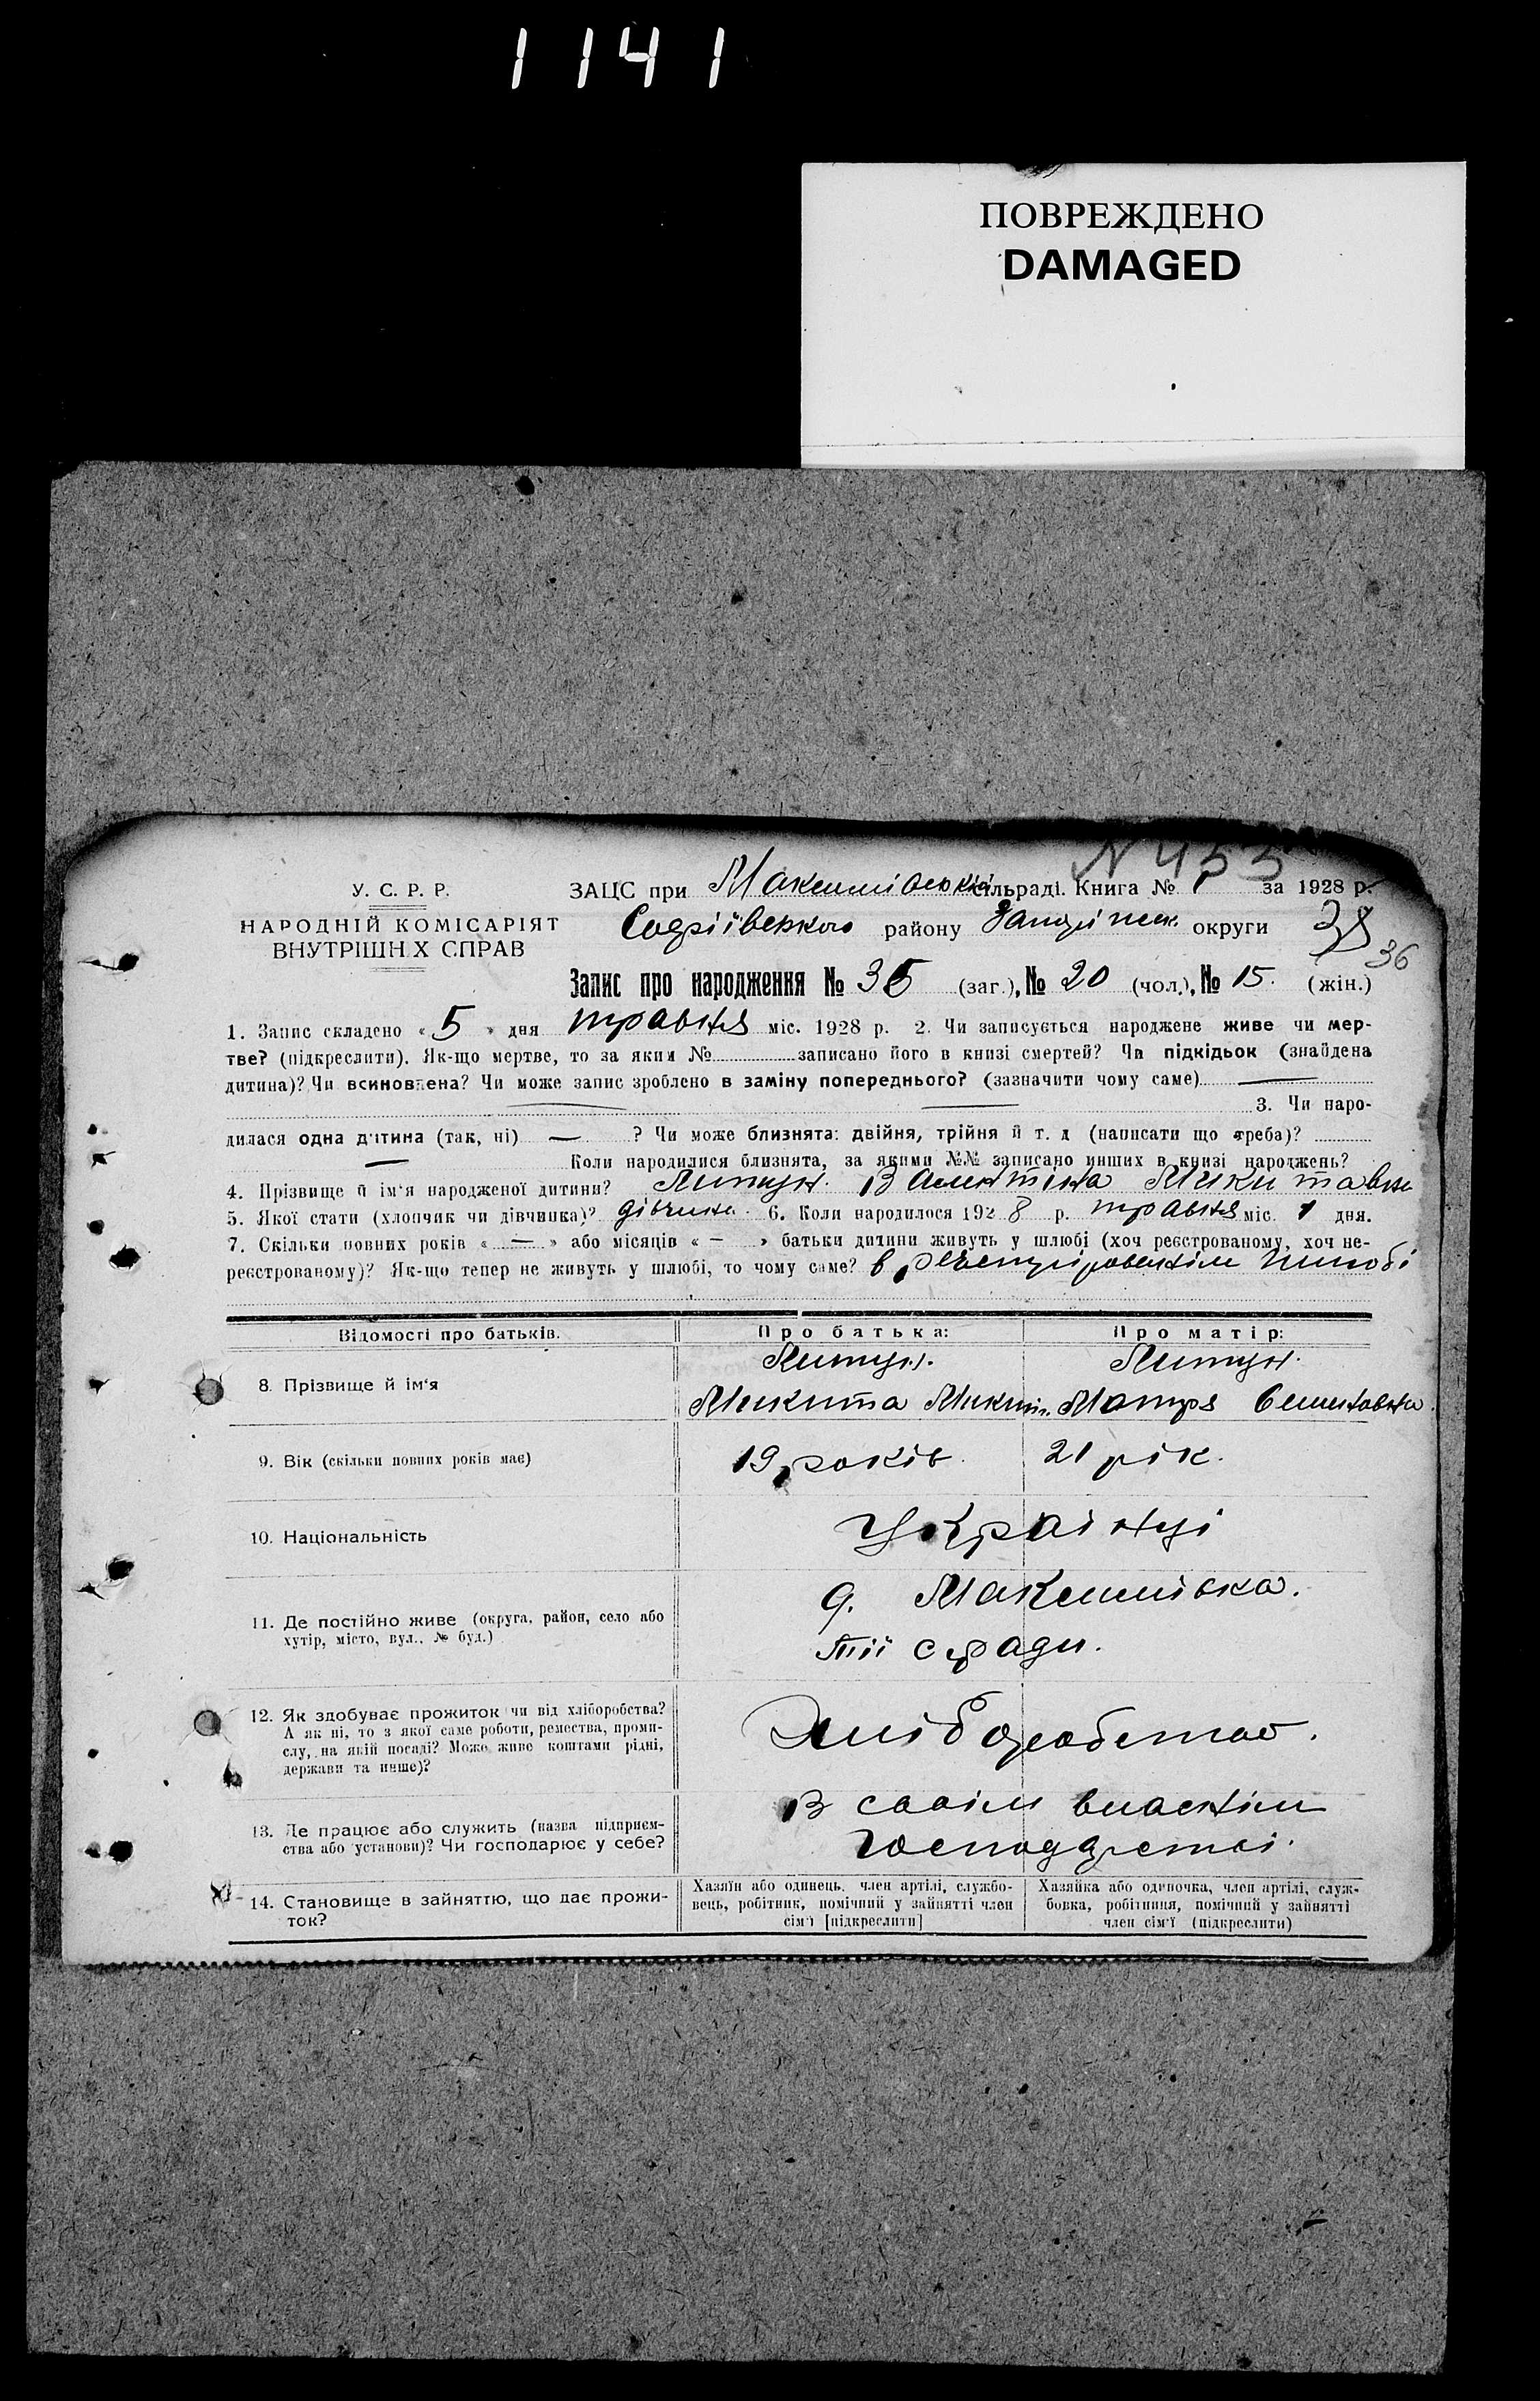 1141
ПОВРЕЖДЕНО
DAMAGED
N 455
У. С. Р. Р.
НАРОДНІЙ КОМІСАРІЯТ
ВНУТРІШН Х СПРАВ
ЗАЦС при сільраді. Книга № 1 за 1928 р.
Софіївського району округи
36
Запис про народження № 35 (заг.), № 20 (чол.), № 15. (жін.)
1. Запис складено « 5 » дня травня міс. 1928 р. 2. Чи записується народжене живе чи мер-
тве? (підкреслити). Як-що мертве, то за яким № записано його в книзі смертей? Чи підкідьок (знайдена
дитина)? Чи всиновлена? Чи може запис зроблено в заміну попереднього? (зазначити чому саме) —
— — 3. Чи наро-
дилася одна дитина (так, ні) — ? Чи може близнята: двійня, трійня й т. д (написати що треба)?
— Коли народилися близнята, за якими №№ записано инших в книзі народжень?
4. Прізвище й ім'я народженої дитини? Литун. Валентіна Микитавна
5. Якої стати (хлопчик чи дівчинка)? дівчина. 6. Коли народилося 192 8 р. травня міс. 1 дня.
7. Скільки повних років « — » або місяців « — » батьки дитини живуть у шлюбі (хоч реєстрованому, хоч не-
реєстрованому)? Як-що тепер не живуть у шлюбі, то чому саме? в шлюбі
Відомості про батьків.
Про батька:
Про матір:
8. Прізвище й ім'я
Литун.
Микита Микит.
Литун.
Мотря Семеновна.
9. Вік (скільки повних років має)
19 років.
21 рік.
10. Національність
Українці
11. Де постійно живе (округа, район, село або
хутір, місто, вул.. № буд.)
Максимівка.
тії с ради.
12. Як здобуває прожиток чи від хліборобства?
А як ні, то з якої саме роботи, ремества, проми-
слу, на якій посаді? Може живе коштами рідні,
держави та инше)?
Хліборобство.
13. Де працює або служить (назва підприєм-
ства або установи)? Чи господарює у себе?
В своім власнім
господрстві.
14. Становище в зайняттю, що дає прожи-
ток?
Хазяїн або одинець, член артілі, службо-
вець, робітник, помічний у зайнятті член
сім'ї [підкреслити]
Хазяйка або одиночка, член артілі, служ-
бовка, робітниця, помічний у зайнятті
член сім'ї (підкреслити)